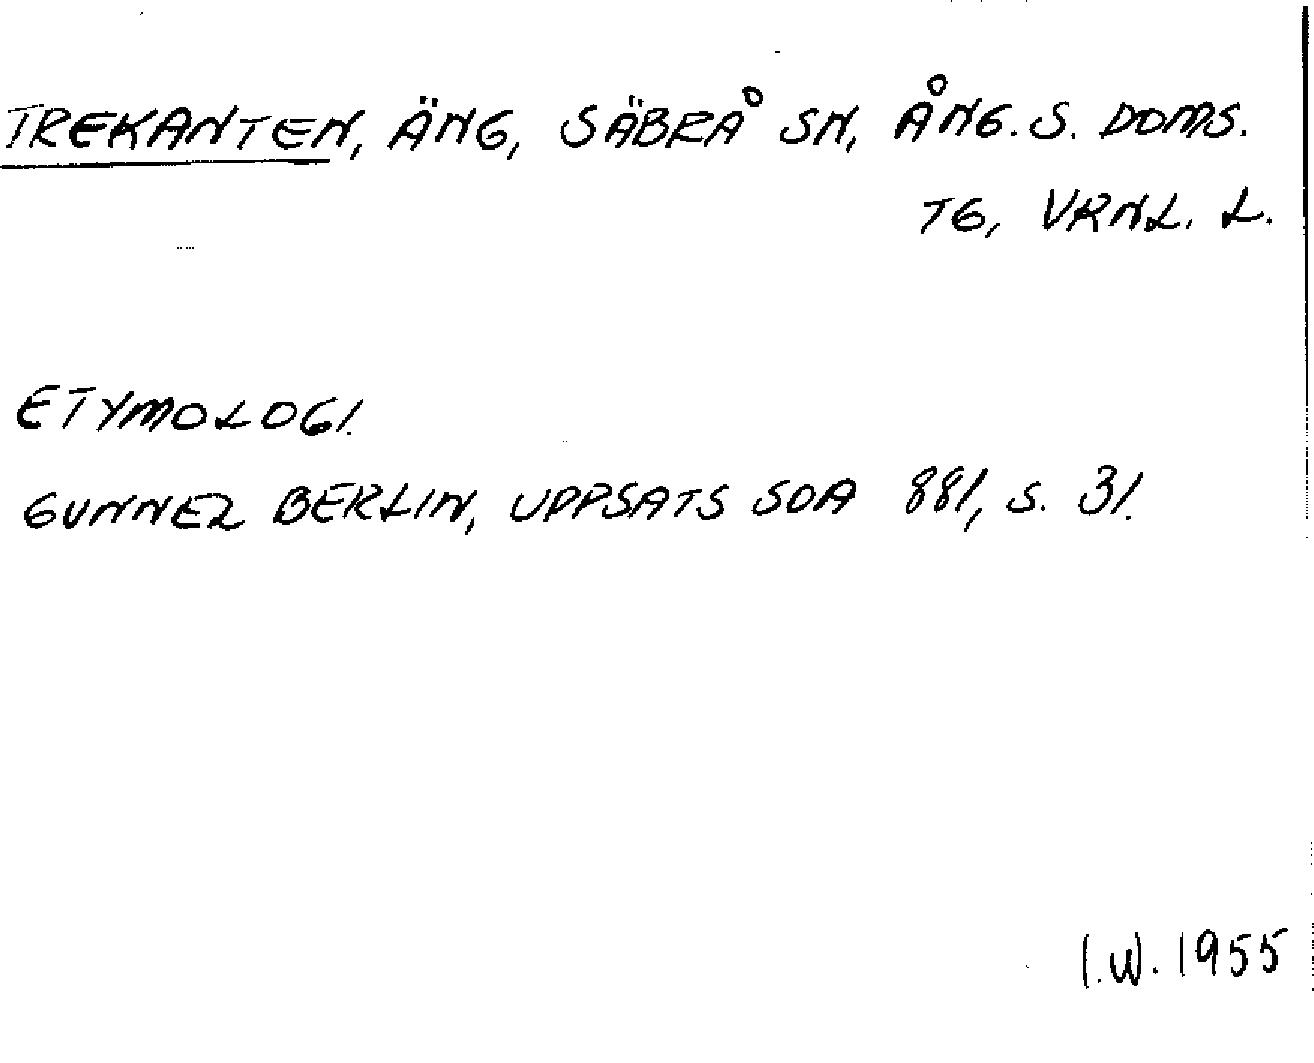 TREKANTEN, ÄNG, SÄBRÅ SN, ÅNG. S. DOMS.
TG, VRNL. L.
ETYMOLOGI.
GUNNEL BERLIN, UPPSATS SOA 881, S. 31.
I.W. 1955